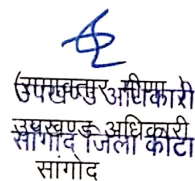 उपखण्ड अधिकारी
उपखण्ड अधिकारी
सांगोद जिला कोटा
सांगोद